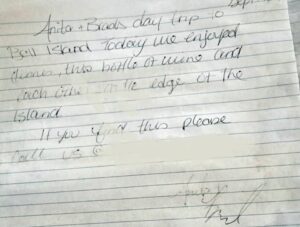 Anita + Brads day trip to
Bell Island Today we enjoyed
dinner, this bottle of wine and
each other on the edge of the
island
If you find this please
call us